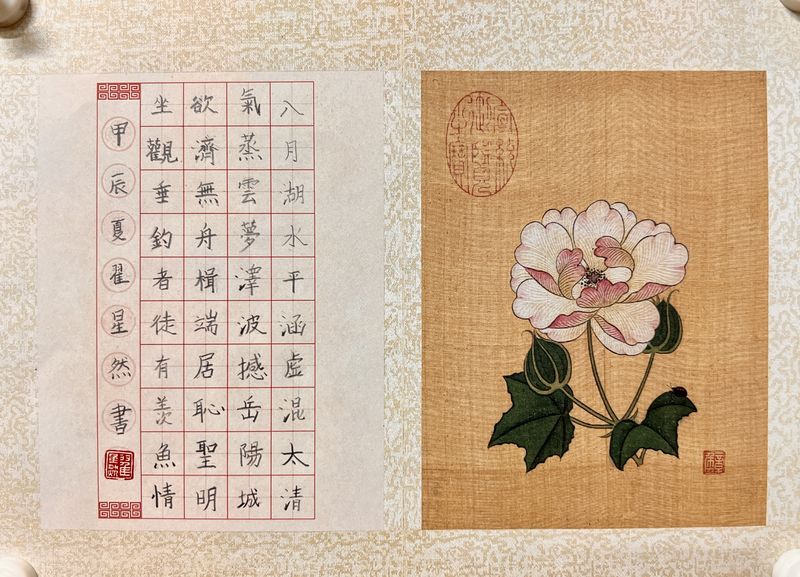 八月湖水平涵虚混太清
氣蒸雲夢澤波撼岳陽城
欲濟無舟楫端居恥聖明
坐觀垂釣者徒有羨魚情
甲辰夏翟星然書